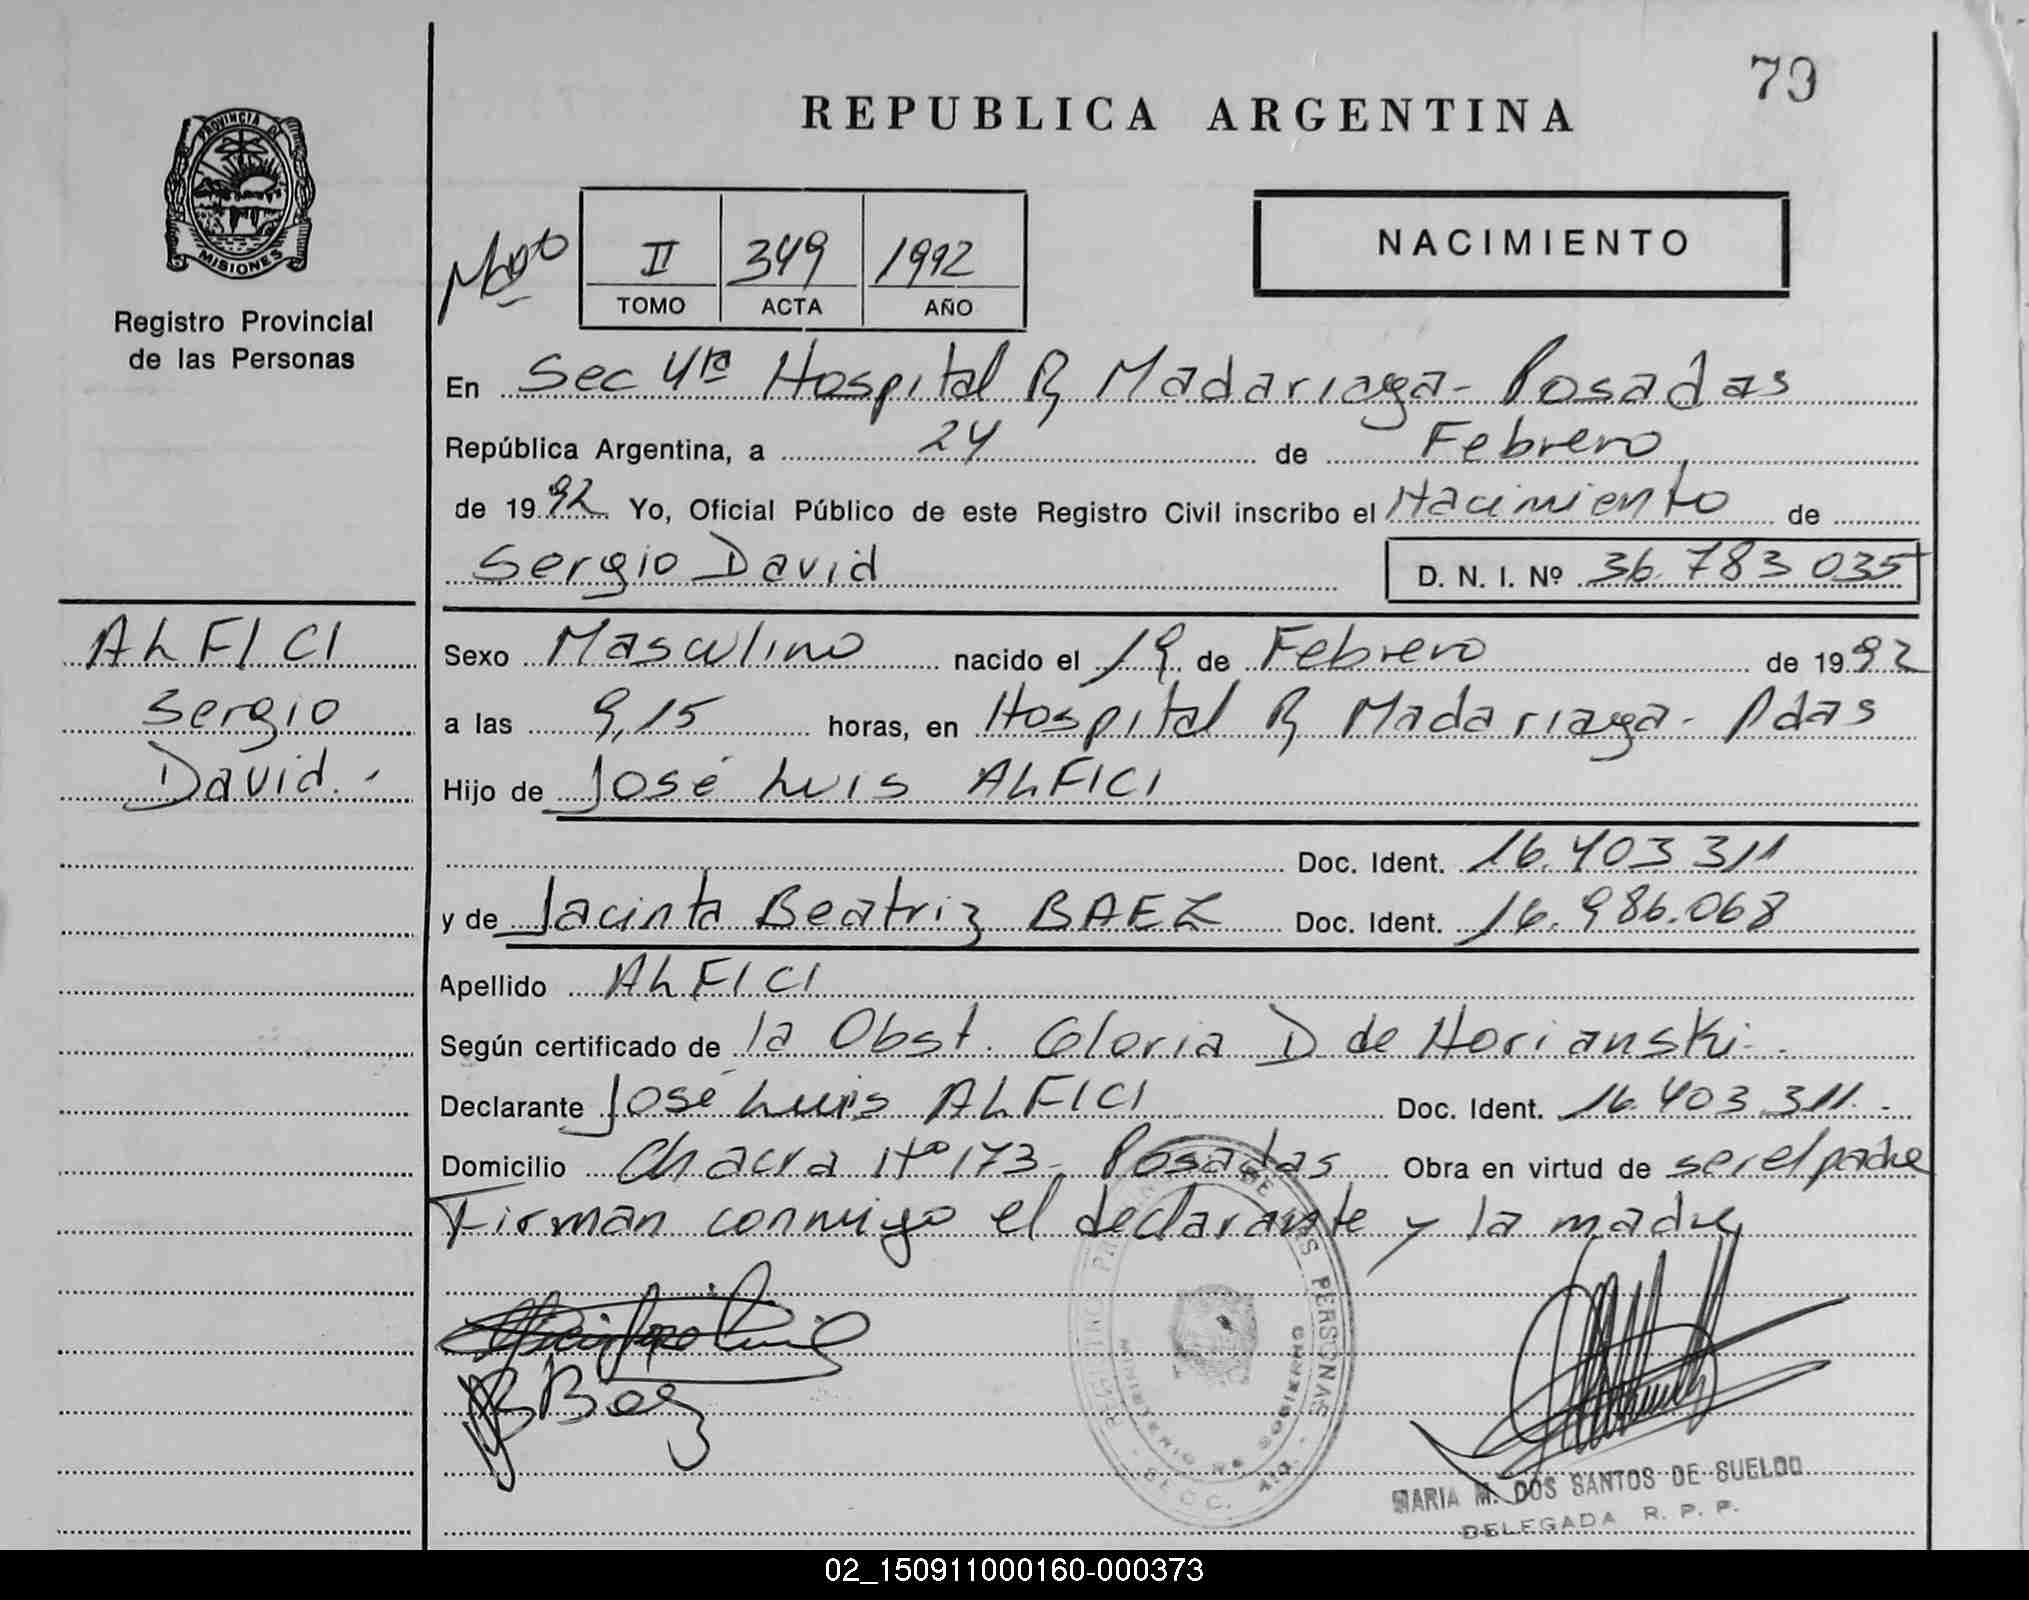 79
REPUBLICA ARGENTINA
PROVINCIA DE
MISIONES
Registro Provincial
de las Personas
II 349 1992
TOMO ACTA AÑO
NACIMIENTO
En Sec 4ta Hospital R Madariaga - Posadas
República Argentina, a 24 de Febrero
de 1992 Yo, Oficial Público de este Registro Civil inscribo el Nacimiento de
Sergio David D. N. I. Nº 36.783.035
ALFICI
Sergio
David.-
Sexo Masculino nacido el 19 de Febrero de 1992
a las 9,15 horas, en Hospital R Madariaga - Pdas
Hijo de José Luis ALFICI
Doc. Ident. 16.403.311
y de Jacinta Beatriz BAEZ Doc. Ident. 16.986.068
Apellido ALFICI
Según certificado de la Obst. Gloria D de Norianski.-
Declarante José Luis ALFICI Doc. Ident. 16.403.311.-
Domicilio Chacra Nº 173 - Posadas Obra en virtud de ser el padre
Firman conmigo el declarante y la madre
REGISTRO PROVINCIAL DE LAS PERSONAS
MINISTERIO DE GOBIERNO
B Baez
MARIA M. DOS SANTOS DE SUELDO
DELEGADA R. P. P.
02_150911000160-000373